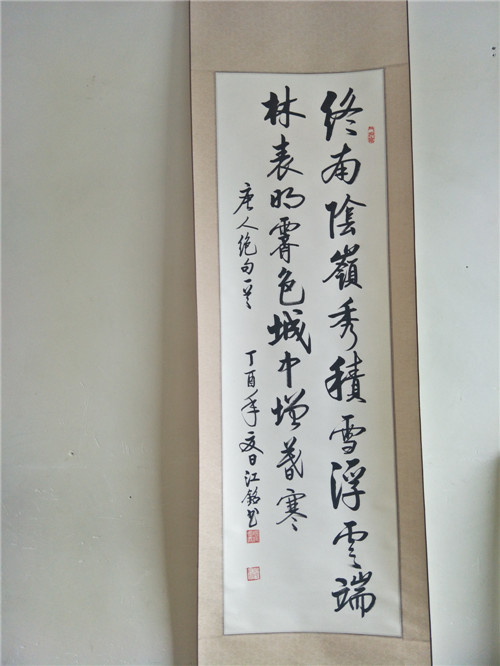 終南陰嶺秀積雪浮雲端
林表明霽色城中增暮寒
唐人绝句一首
丁酉年夏日江铭书